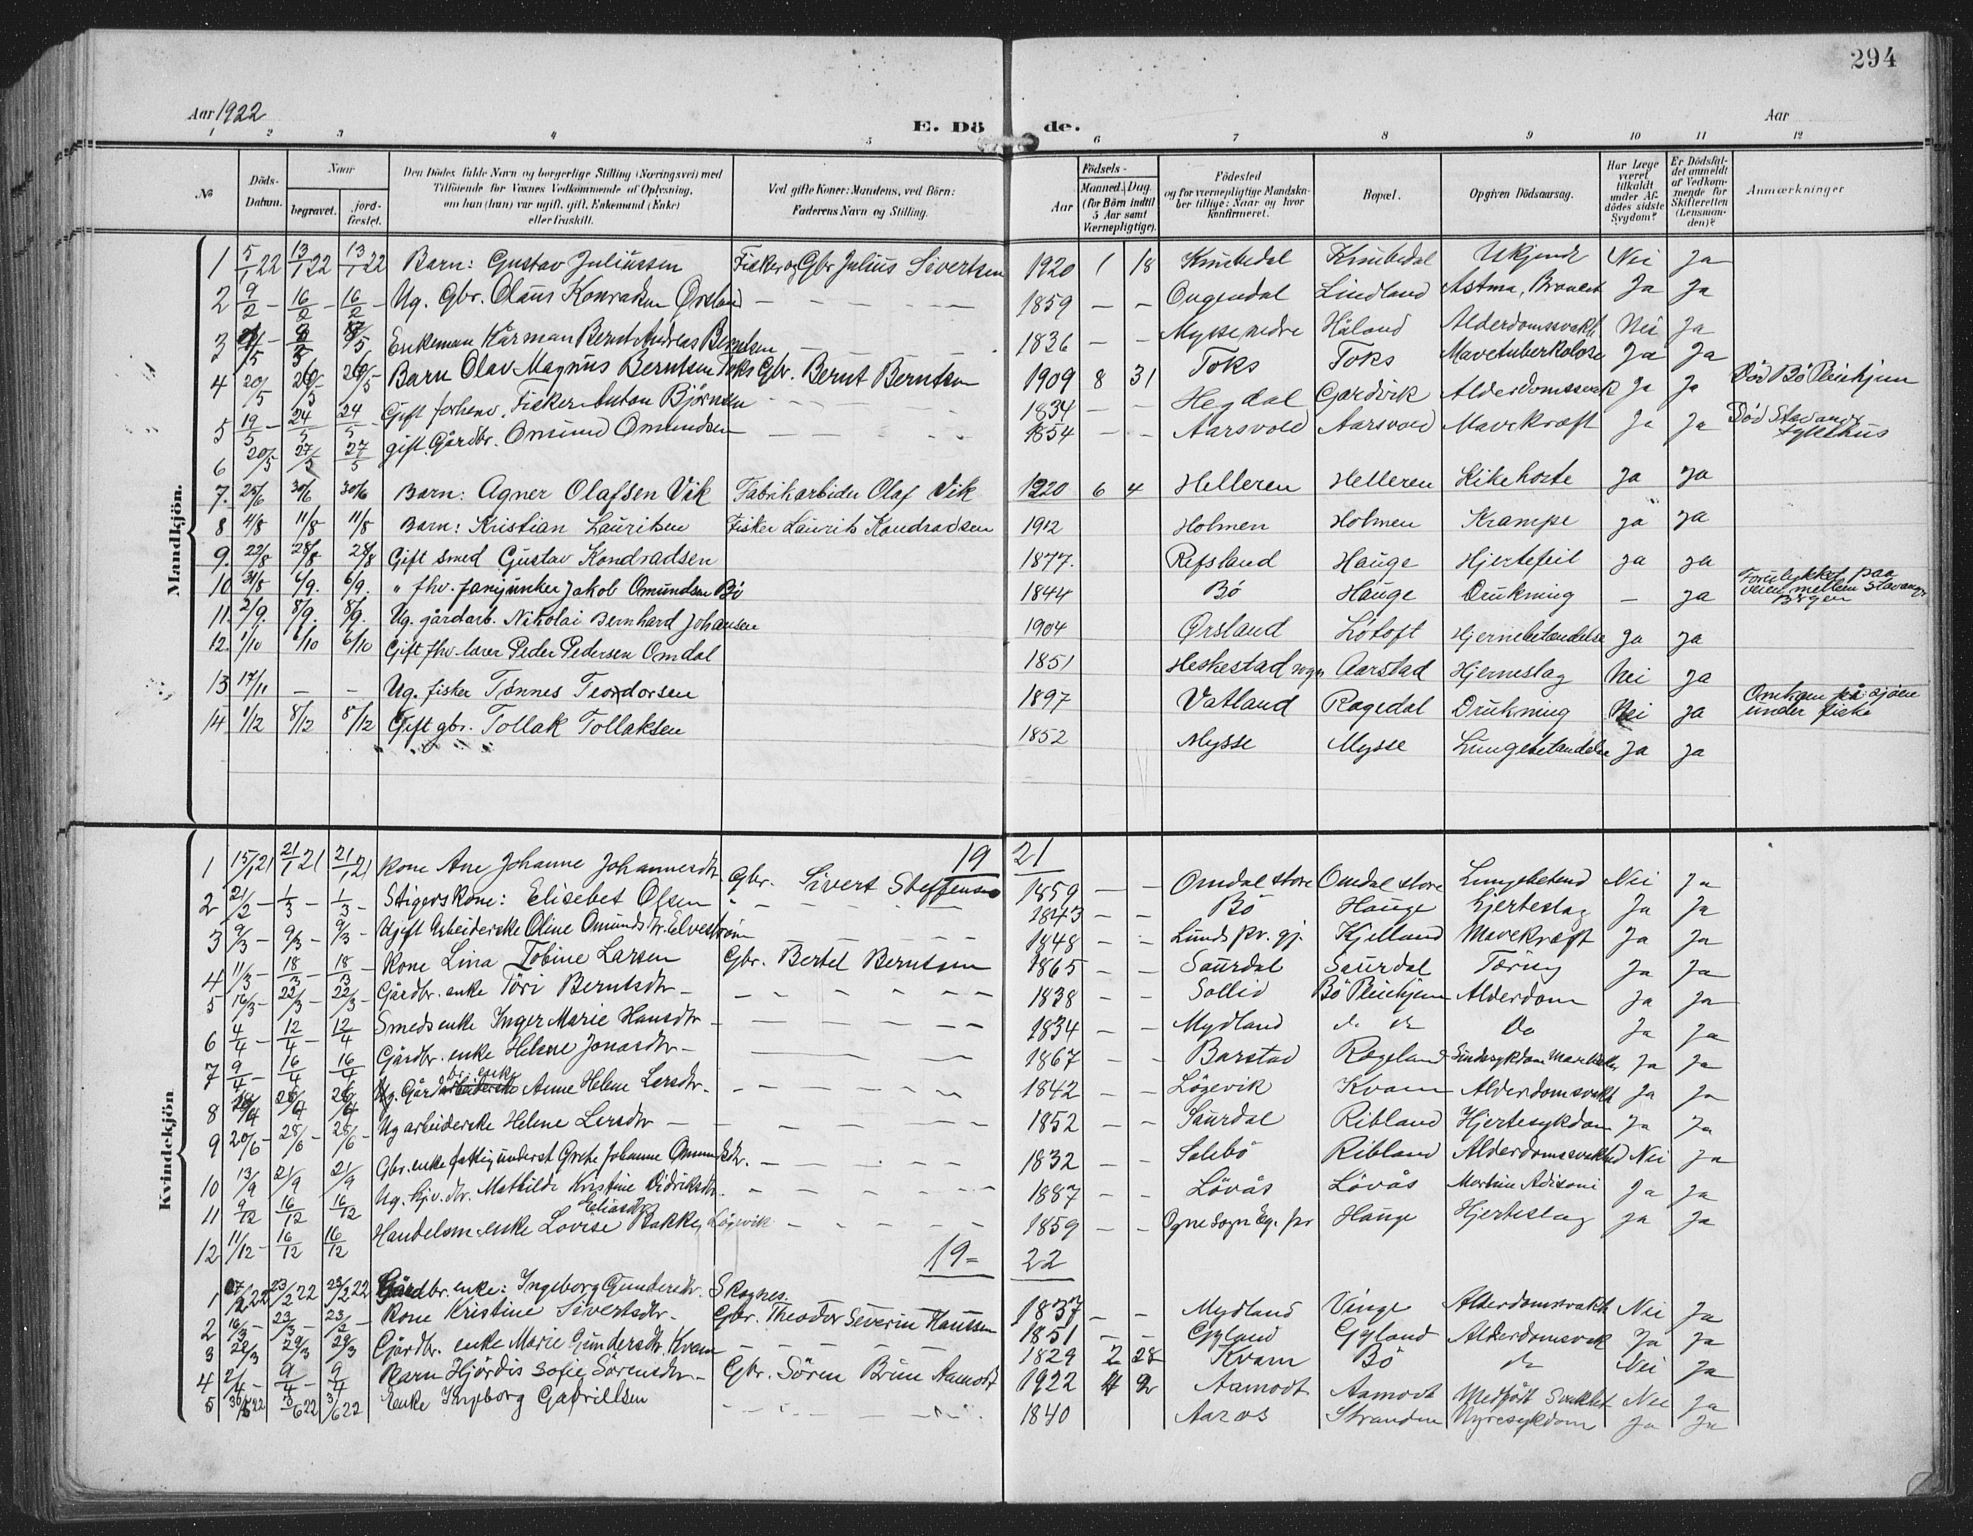 294
Aar 1922 E. Dö de. Aar
1 2 3 4 5 6 7 8 9 10 11 12
No Döds-Datum. Naar begravet. jordfæstet. Den Dödes fulde Navn og borgerlige Stilling (Næringsvei) med Tilföiende for Voxnes Vedkommende af Oplysning, om han (hun) var ugift, gift, Enkemand (Enke) eller fraskilt. Ved gifte Koner: Mandens, ved Börn: Faderens Navn og Stilling. Födsels- Aar Maaned. Dag. (for Börn indtil 5 Aar samt Værnepligtige). Födested og for værnepligtige Mandskaber tillige: Naar og hvor konfirmeret. Bopæl. Opgiven Dödsaarsag. Har Læge været tilkaldt under Afdödes sidste Sygdom? Er Dödsfaldet anmeldt af Vedkommende for Skifteretten (Lensmanden)? Anmærkninger
Mandkjön.
1 5/1 22 13/1 22 13/1 22 Barn: Gustav Juliussen Fisker og Gbr Julius Sivertsen 1920 1 18 Ukjendt Nei Ja
2 9/2 - 16/2 - 16/2 - Ug. Gbr. Olaus Konradsen Ørsland 1859 - - Lindland Astma, Ja Ja
3 Enkeman Kårman Bernt Andreas Berntsen 1836 - - Mysse nedre Håland Alderdomssvakh Nei Ja
4 20/5 26/5 26/5 Barn Olav Magnus Berntsen Toks Gbr. Bernt Berntsen 1909 8 31 Toks Toks Mavetuberkolose Ja Ja Död Bö Pleiehjem
5 19/5 - 24/5 24/5 Gift forhenv. Fisker Anton Bjørnsen 1834 - - Hegdal Gardvik Alderdomssvak Ja Ja
6 20/5 27/5 27/5 gift Gårdbr. Omund Omundsen 1854 - - Aarsvold Aarsvold Mavekræft Ja Ja Død Stavanger sykehus
7. 25/6 30/6 30/6 Barn: Agner Olafsen Vik Fabrikarbider Olaf Vik 1920 6 4 Helleren Helleren Kikehoste Ja Ja
8 4/8 11/8 11/8 Barn: Kristian Lauritsen Fisker Laurits Kondradsen 1912 Holmen Holmen Krampe ja Ja
9. 22/8 28/8 28/8 Gift smed Gustav Kondradsen 1877. Refsland Hauge Hjertefeil ja ja
10 31/8 6/9. 6/9. " fhv. fanejunker Jakob Omundsen Bö 1844 Bö Hauge Drukning - ja Forulykket paa veien mellem Stavanger Bergen
11. 2/9. 8/9. 8/9. Ug. gårdarb. Nikolai Bernhard Johansen 1904 Ørsland Löloft Hjernebetændelse ja ja
12. 1/10 6/10 6/10 Gift fhv. lærer Peder Pedersen Omdal 1851 Heskestad sogn Aarstad Hjerneslag Nei ja
13 17/11 - - Ug. fisker Tønnes Teodorsen 1897 Vatland Ragedal Drukning Nei ja Omkom på sjøen under fiske
14. 1/12 8/12 8/12 Gift gbr. Tollak Tollaksen 1852 Mysse Mysse Lungebetændelse Ja Ja
Kvindekjön
19 21
1 15/1 21 21/1 21 21/1 21 Kone Ane Johanne Johannesdtr. Gbr. Sivert Steffensen 1859 - - Omdal store Omdal store Lungebetænd Nei Ja
2 21/2 - 1/3 - 1/3 - Stigerskone: Elisebet Olsen 1843 - - Bö Hauge Hjerteslag Ja Ja
3 9/3 - 9/3 - 9/3 - Ugift Arbeiderske Oline Omundsdtr. Elvestrøm 1848 - - Lunds pr. gj. Kjelland Mavekræft Ja Ja
4 11/3 - 18/3 - 18/3 - Kone Lina Tobine Larsen Gbr. Bertel Berntsen 1865 - - Saurdal Saurdal Tæring Ja Ja
5 16/3 - 22/3 - 22/3 - Gårdbr. enke Töri Berntsdtr - 1838 - - Sollid Bö Pleiehjem Alderdom Ja Ja
6 4/4 - 12/4 - 12/4 Smedsenke Inger Marie Hansdtr - 1834 - - Mydland do do Do Ja Ja
7 9/4 - 16/4 16/4 Gårdbr. enke Helene Jonasdtr - 1867 - - Barstad Rægeland Ja Ja
8 Ug. Gårdbr. enke Anne Helene Larsdtr. 1842 - - Lögevik Kvam Alderdomsvakh Ja Ja
9 20/6 - 28/6 - 28/6 - Ug arbeiderske Helene Larsdtr - 1852 - - Saurdal Ribland Hjertesykdom Ja Ja
10 13/9 21/9 21/9 Gbr. enke fattigunderst Grete Johanne Omundsdtr. 1832 - - Salebö Ribland Alderdomssvakhd Nei Ja
11 9/12 16/12 16/12 Ug. hjv. dtr. Mathilde Kristine Didriksdtr. 1887 - - Lövås Lövås Morbus Adisoni Ja Ja
12 11/12 - 16/12 16/12 Handelsm. enke Lovise Eliasdtr Bakke, Lögevik 1859 - - Ogne sogn Eg. pr Hauge Hjerteslag Ja Ja
19= 22
1 22 23/2 22 23/2 22 Gårdbr. enke: Ingeborg Gundersdtr. Skognes. 1837 - - Mydland Vinge Alderdomsvakh Nei Ja
2 16/3 - 23/3 - 23/3 - Kone Kristine Sivertsdtr. Gbr. Theodor Severin Hansen 1851 - - Gyland Gyland Alderdomsvak Ja Ja
3 22/3 29/3 29/3 Gårdbr. enke Marie Gundersdtr. Kvam 1829 2 28 Kvam Bö do Nei Ja
4 2/4 - 9/4 - 9/4 Barn Hjördis Sofie Sörensdtr - Gbr. Sören Brun Aamodt 1922 4 2 Aamodt Aamodt Medfödt Svakhet Nei Ja
5 Enke Ingeborg Gabrillsen 1840 Aaros Stranden Nyresykdom Ja Ja